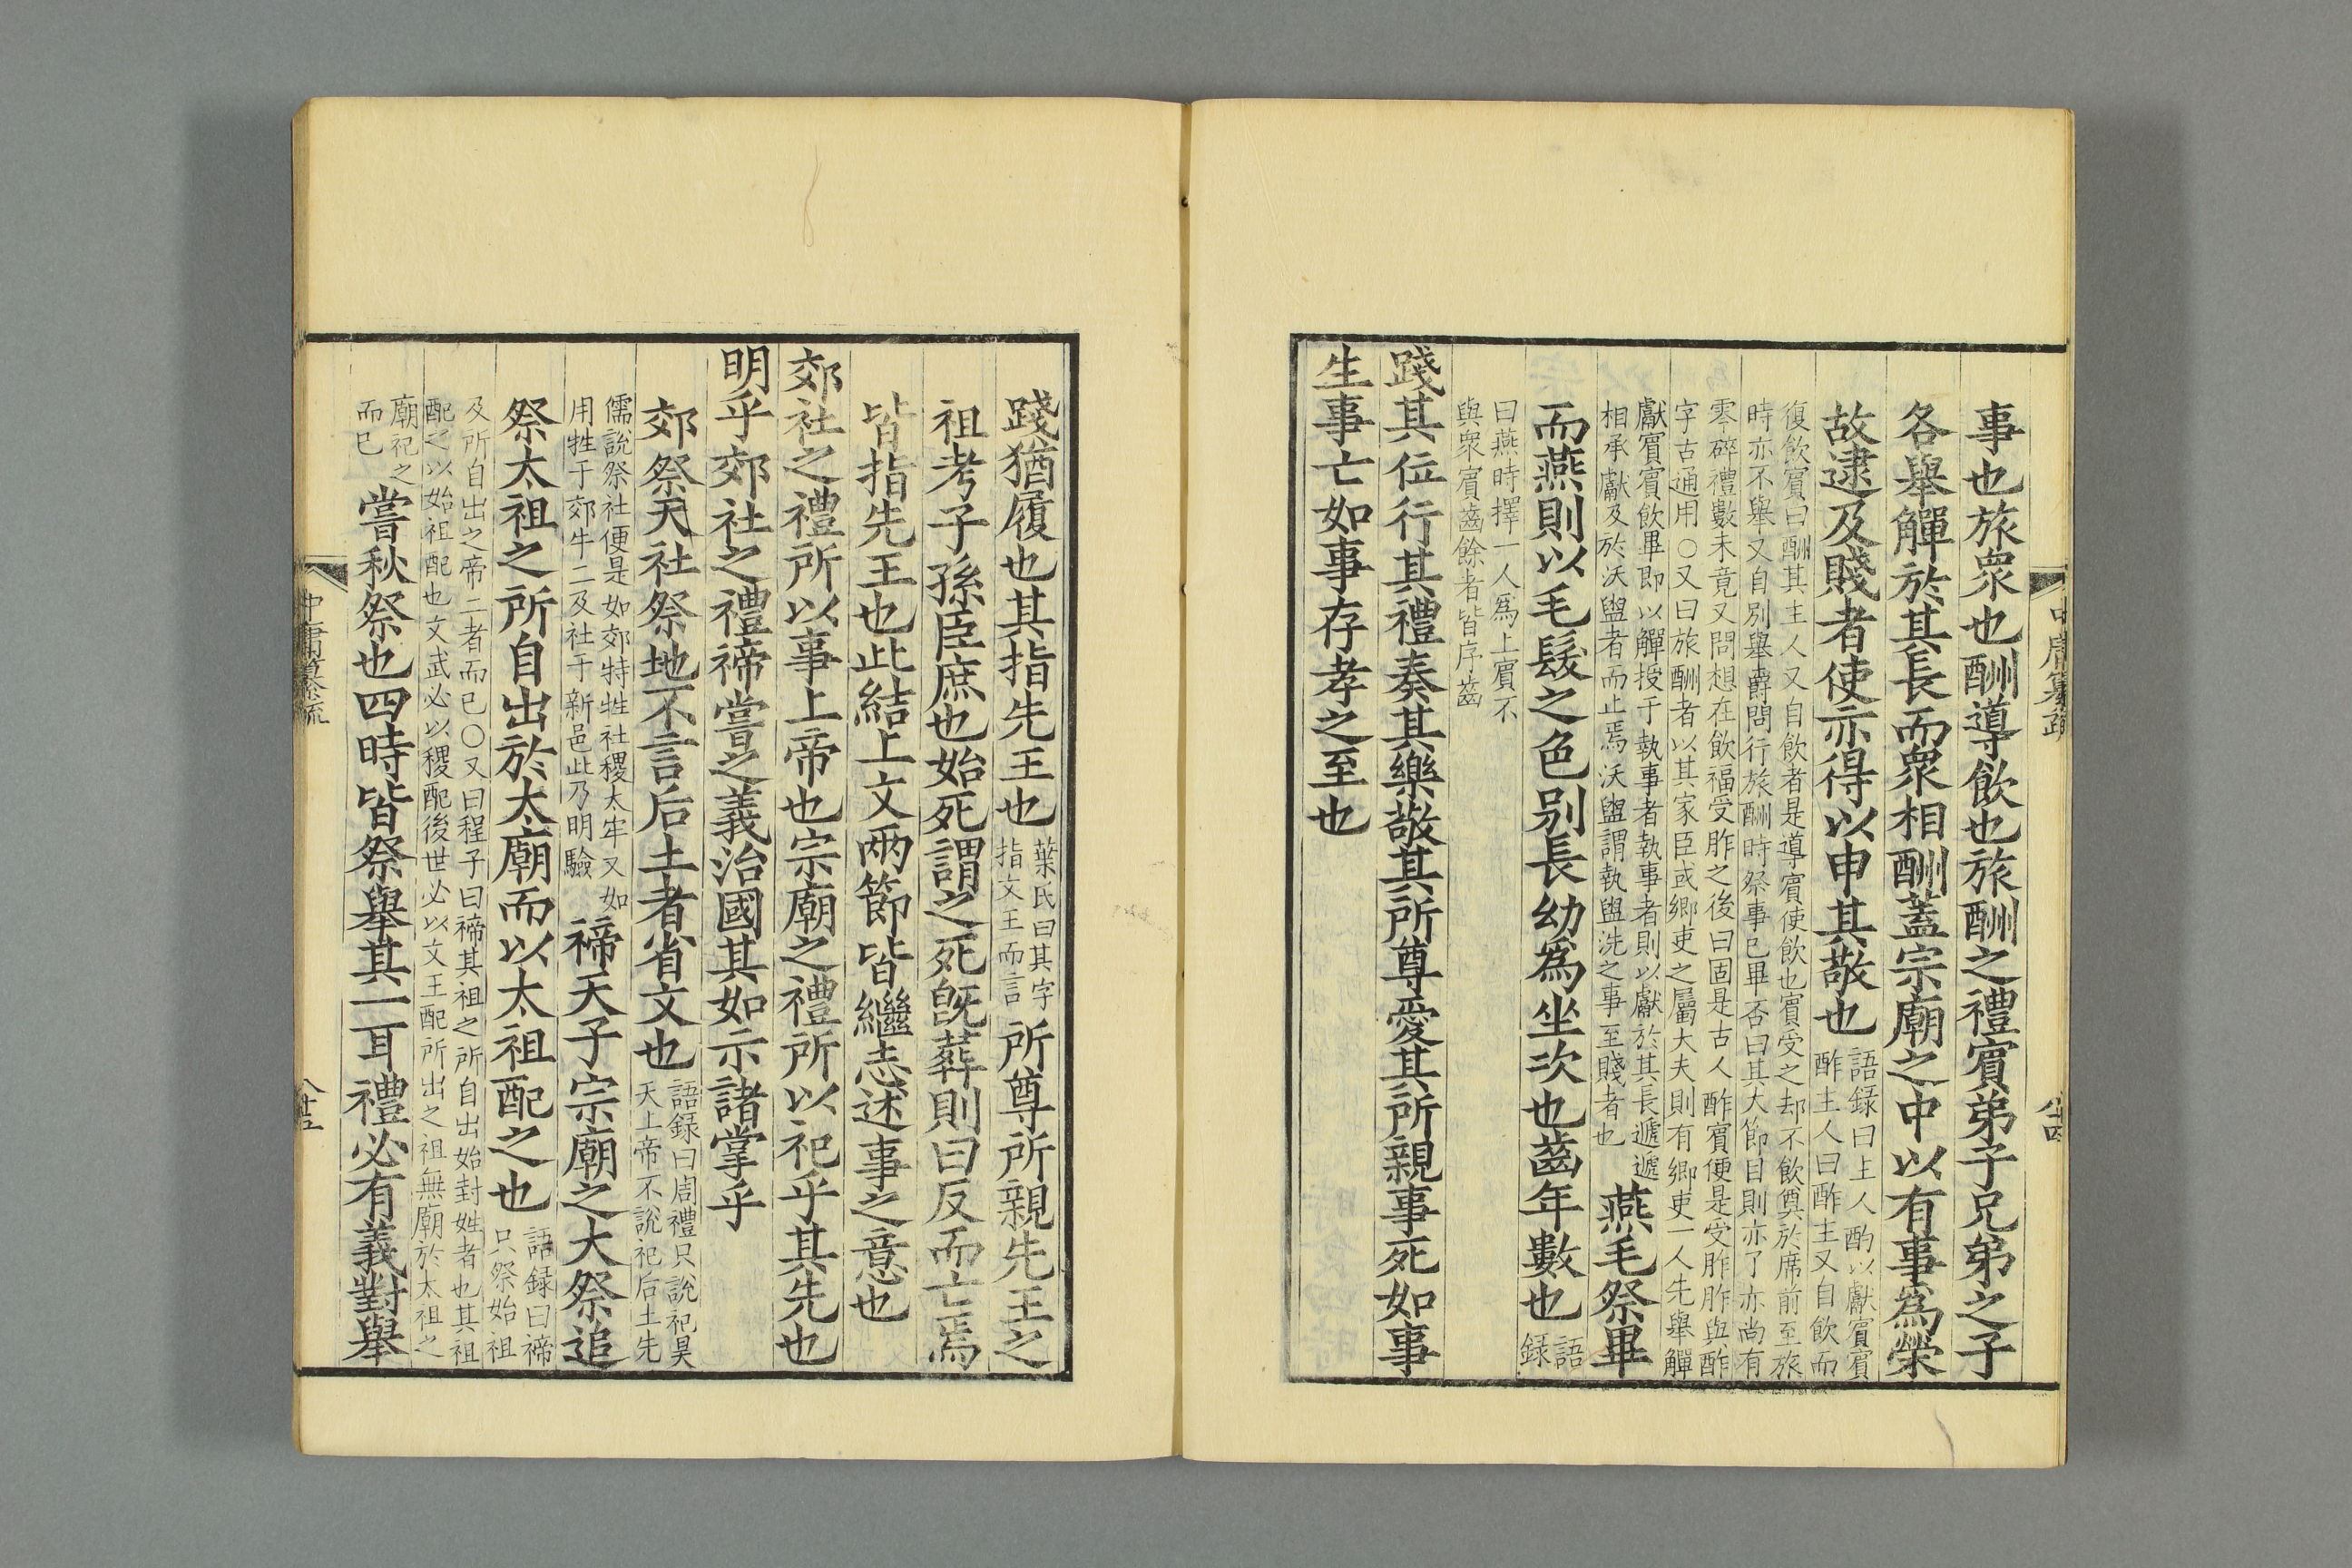 中庸纂疏
事也旅衆也酬導飲也旅酬之禮賓弟子兄弟之子
各舉觶於其長而衆相酬蓋宗廟之中以有事爲榮
故逮及賤者使亦得以申其敬也
語録曰主人酌以獻賓賓
酢主人曰酢主又自飲而
復飲賓曰酬其主人又自飲者是導賓使飲也賓受之却不飲奠於席前至旅
時亦不舉又自別舉爵問行旅酬時祭事已畢否曰其大節目則亦了亦尚有
零碎禮數未竟又問想在飲福受胙之後曰固是古人酢賓便是受胙胙與酢
字古通用○又曰旅酬者以其家臣或鄉吏之屬大夫則有鄉吏一人先舉觶
獻賓賓飲畢即以觶授于執事者執事者則以獻於其長遞遞
相承獻及於沃盥者而止焉沃盥謂執盥洗之事至賤者也
燕毛祭畢
而燕則以毛髮之色别長幼爲坐次也齒年數也
語
録
曰燕時擇一人爲上賓不
與衆賓齒餘者皆序齒
踐其位行其禮奏其樂敬其所尊愛其所親事死如事
生事亡如事存孝之至也
踐猶履也其指先王也
葉氏曰其字
指文王而言
所尊所親先王之
祖考子孫臣庶也始死謂之死旣葬則曰反而亡焉
皆指先王也此結上文兩節皆繼志述事之意也
郊社之禮所以事上帝也宗廟之禮所以祀乎其先也
明乎郊社之禮禘嘗之義治國其如示諸掌乎
郊祭天社祭地不言后土者省文也
語録曰周禮只說祀昊
天上帝不說祀后土先
儒說祭社便是如郊特牲社稷太牢又如
用牲于郊牛二及社于新邑此乃明驗
禘天子宗廟之大祭追
祭太祖之所自出於太廟而以太祖配之也
語録曰禘
只祭始祖
及所自出之帝二者而已○又曰程子曰禘其祖之所自出始封姓者也其祖
配之以始祖配也文武必以稷配後世必以文王配所出之祖無廟於太祖之
廟祀之
而已
嘗秋祭也四時皆祭舉其一耳禮必有義對舉
中庸纂疏